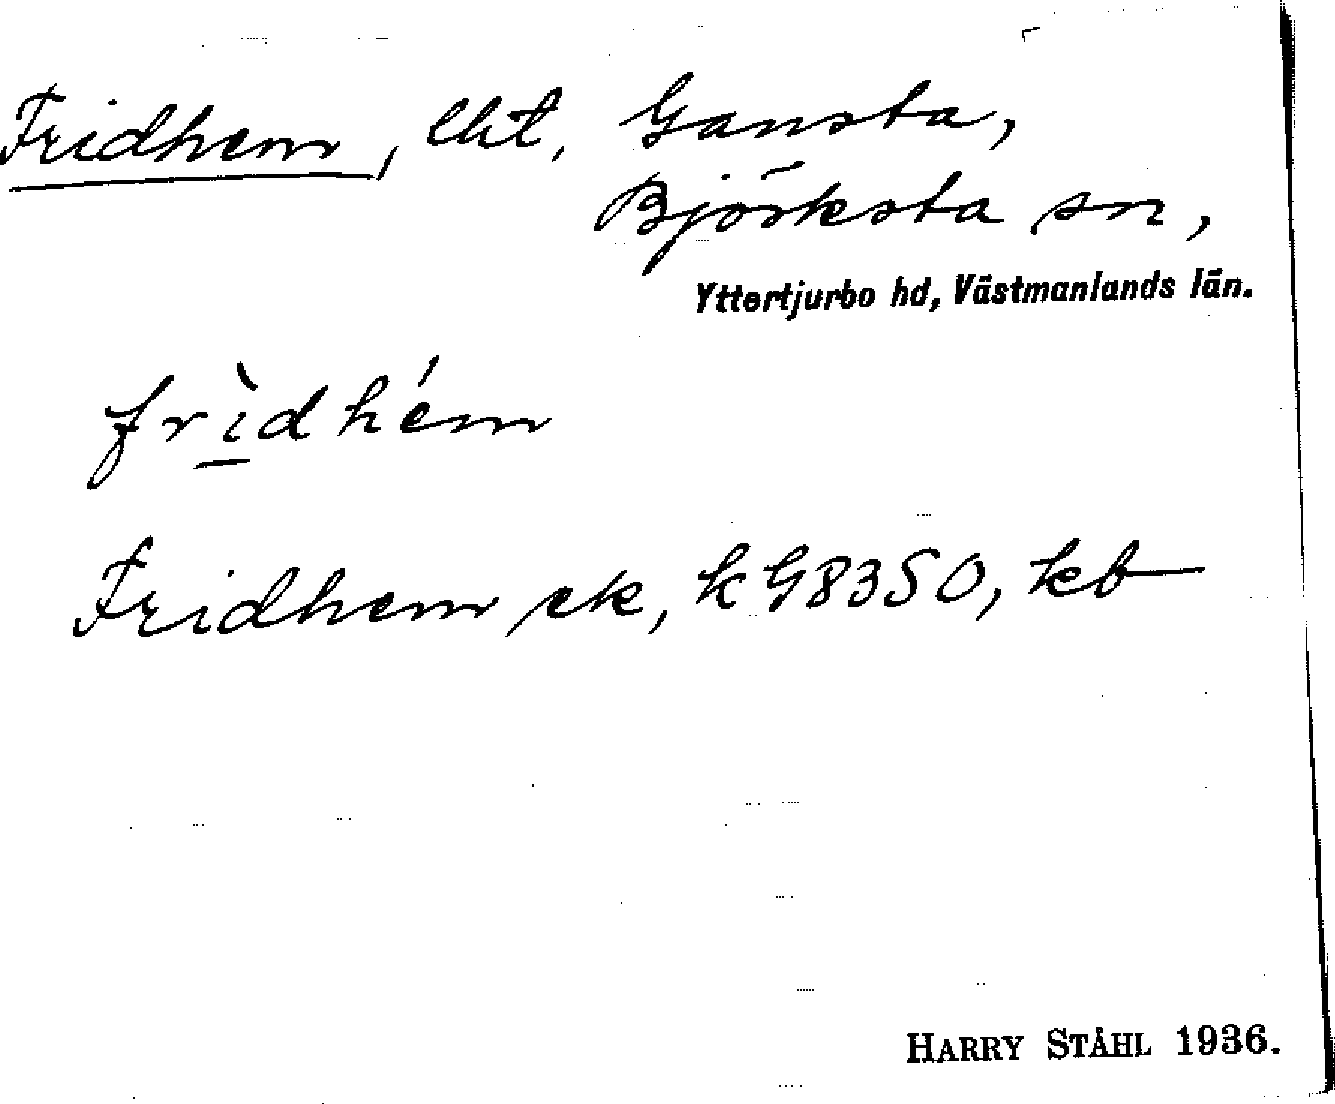 Fridhem, lht, Gansta,
Björksta sn,
Yttertjurbo hd, Västmanlands län.
frìdhém
Fridhem ek, k G8350, kb
HARRY STÅHL 1936.